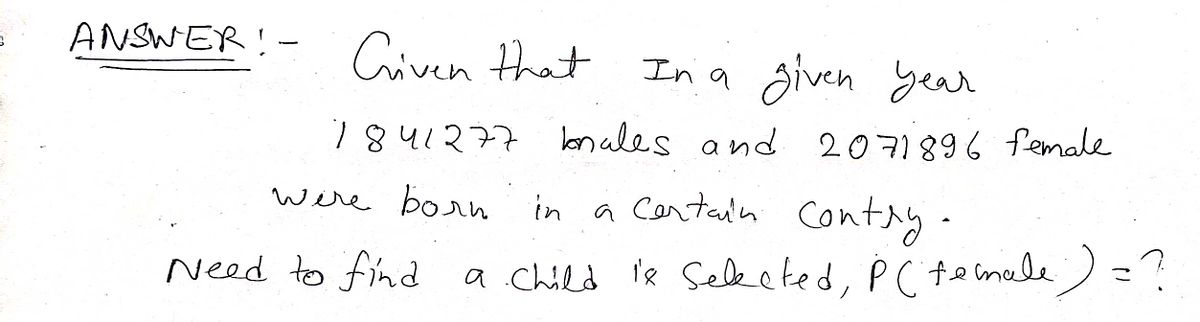 ANSWER:- Given that In a given year
1841277 males and 2071896 female
were born in a certain contry.
Need to find a child is selected, P(female) = ?